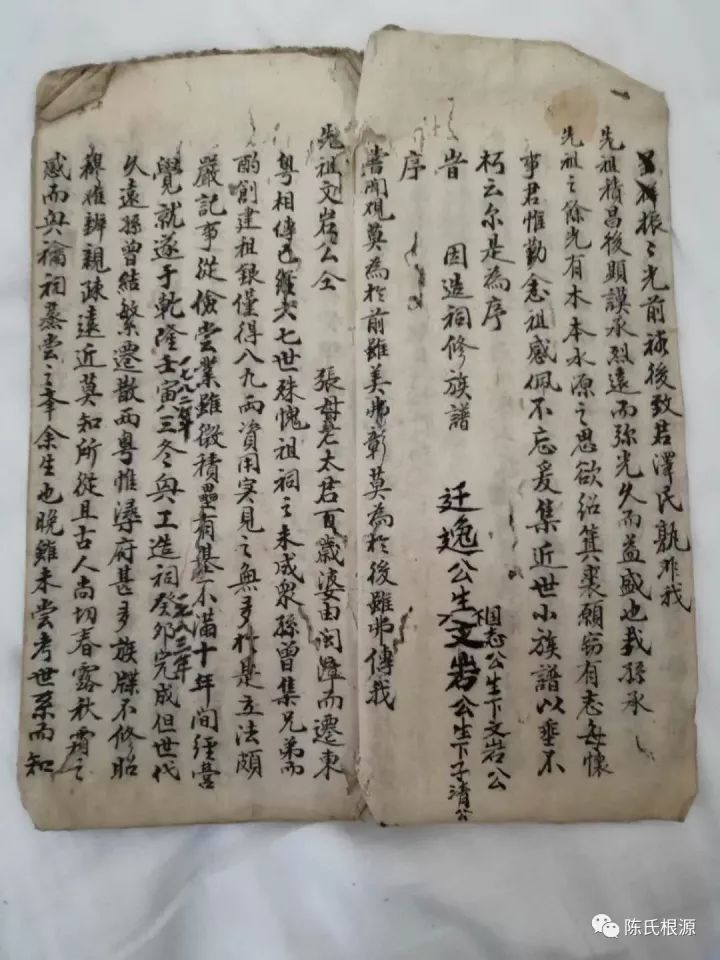 振〻光前裕後致君澤民孰非我
先祖積昌後顯謨承烈遠而弥光久而益盛也我孫承
先祖之餘光有木本水源之思欲紹箕裘願窃有志每懷
事君惟勤念祖感佩不忘爰集近世小族譜以垂不
朽云尔是為序
昔 因造祠修族譜
廷逸公生文岩公生下子清公
国志公生下文岩公
序
嘗聞莫為於前雖美弗彰莫為於後雖弗傳我
先祖文岩公仝 張妣老太君百歲婆由闽漳而遷東
粤相傳已六七世殊愧祖祠之未成衆孫曾集兄弟而
酌創建祖銀僅得八九両資用寔見之無多於是立法頗
嚴記事從儉尝業雖微積壘有基不滿十年间经营
覺就遂于乾隆壬寅三冬興工造祠癸卯完成但世代
一七八二年
一七八三年
久遠孫曾结繁遷散両粤惟潯府甚多族牒不修昭
穆难辨親疎遠近莫知所從且古人尚切春露秋霜之
感而興禴祠蒸尝之舉余生也晚雖未尝考世系而知
陈氏根源